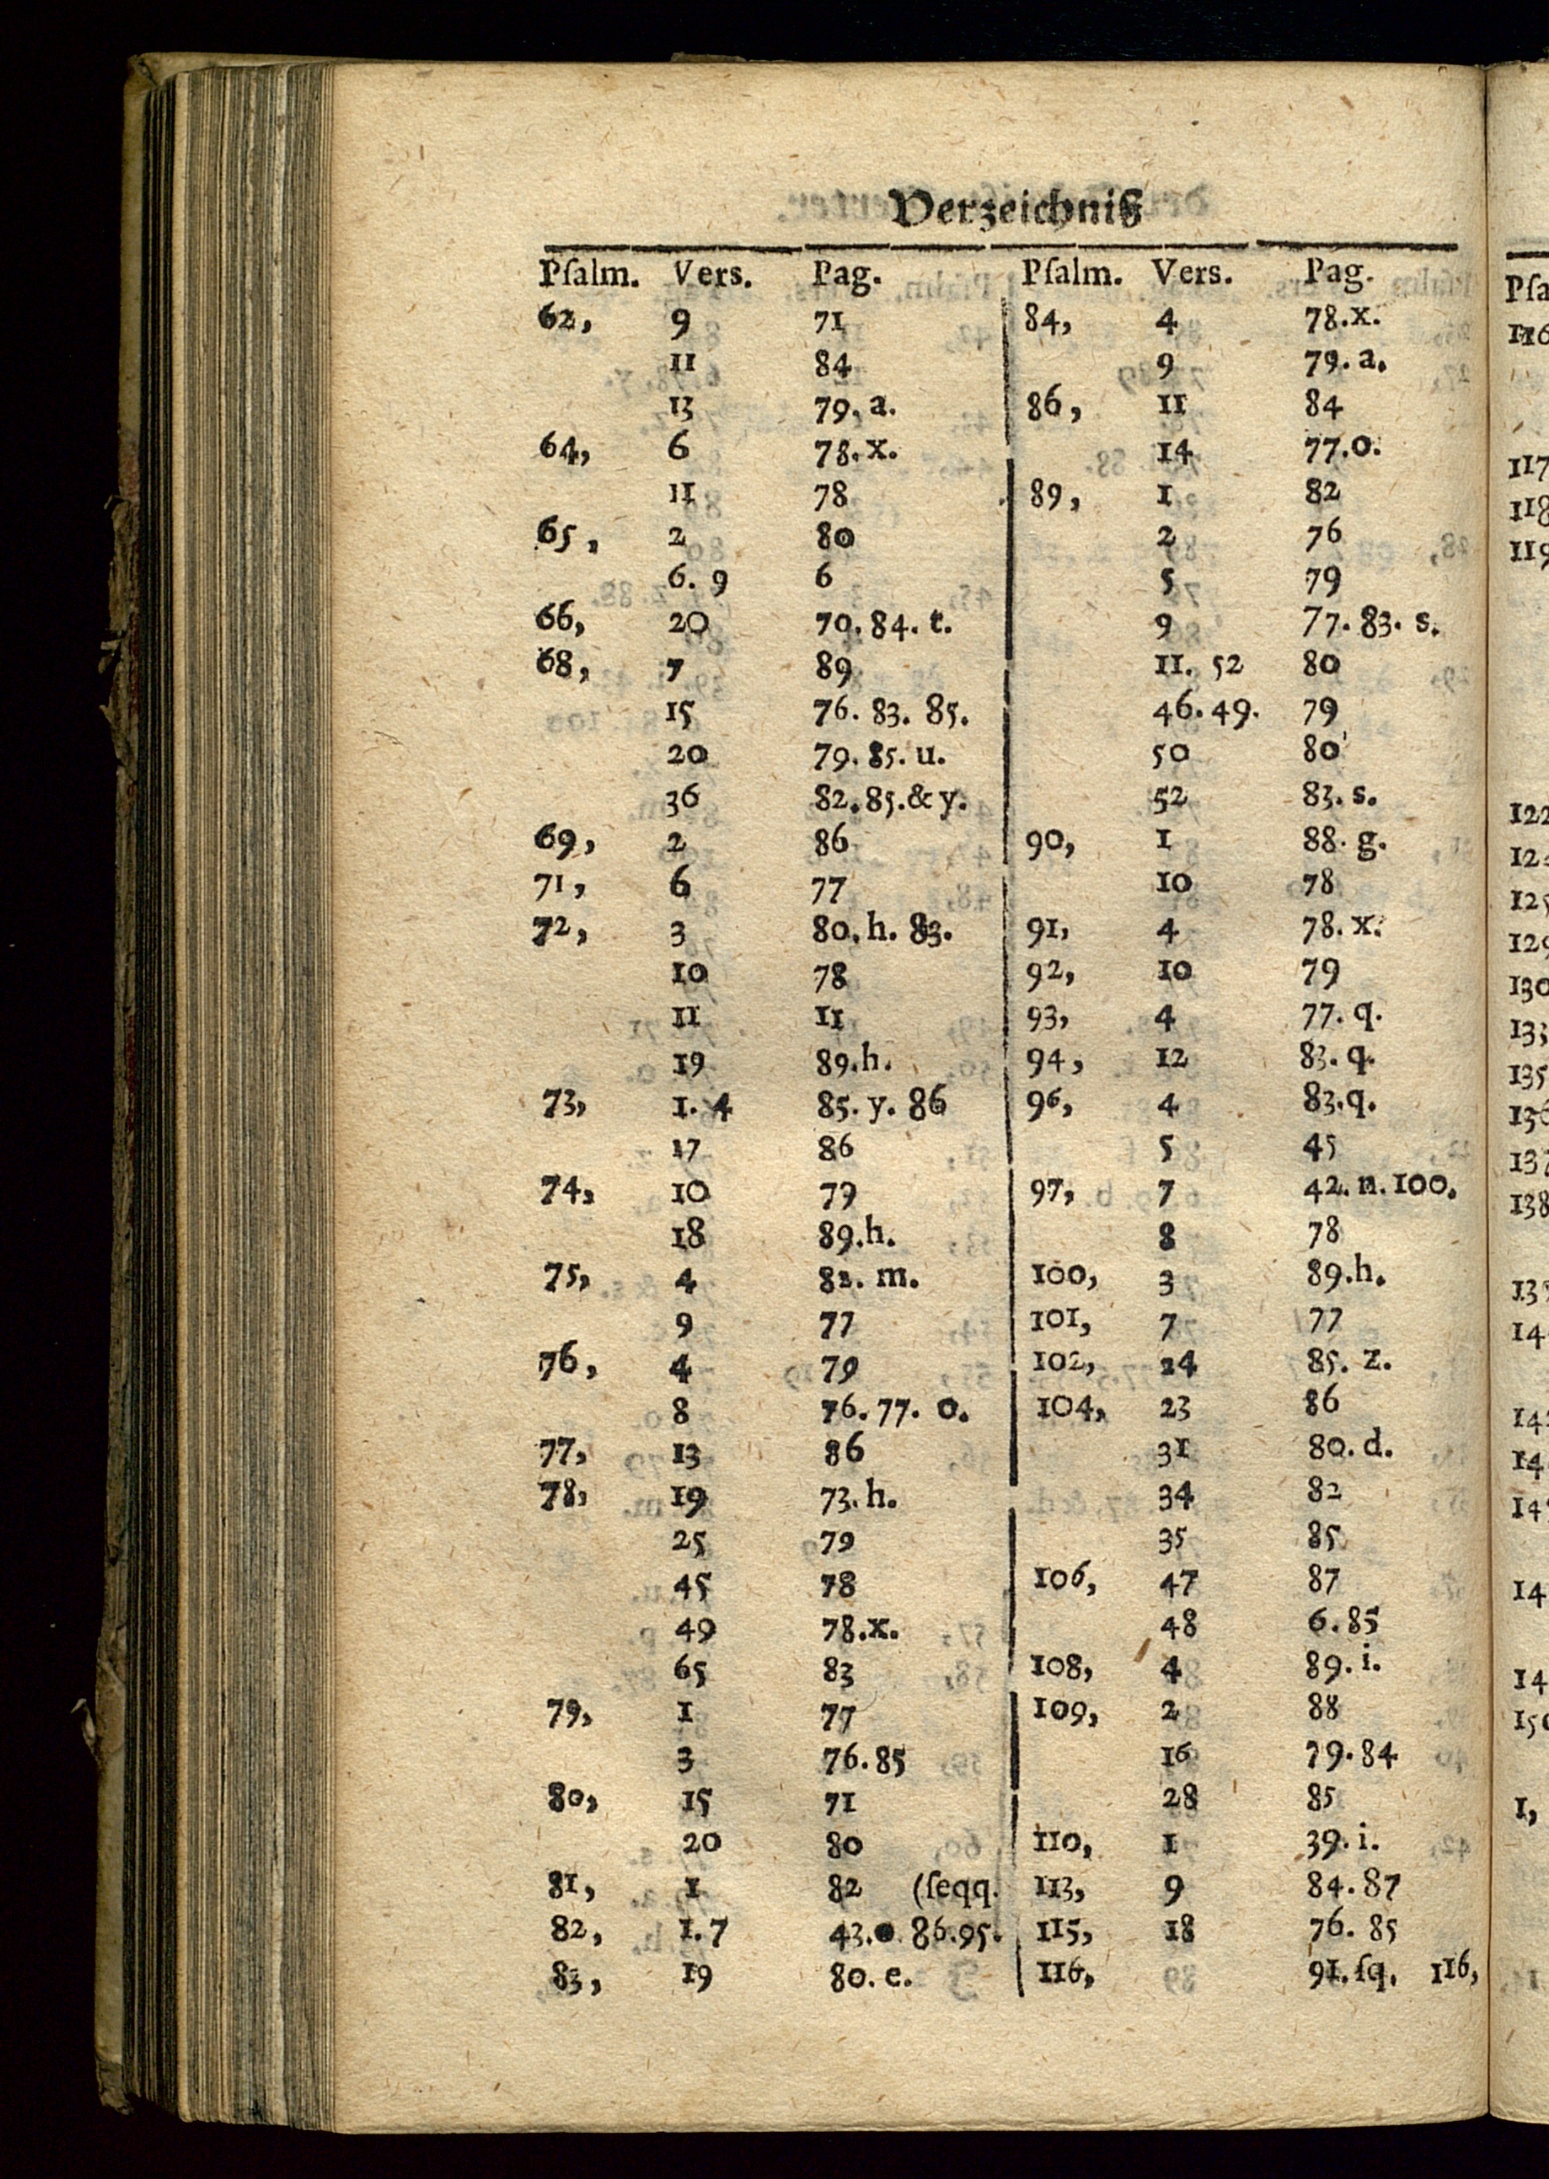 Verzeichniß
Pſalm. Vers. Pag.
62, 9 71
11 84
13 79. a.
64, 6 78. x.
11 78
65, 2 80
6. 9 6
66, 20 70. 84. t.
68, 7 89
15 76. 83. 85.
20 79. 85. u.
36 82. 85. & y.
69, 2 86
71, 6 77
72, 3 80. h. 83.
10 78
11 11
19 89. h.
73, 1. 4 85. y. 86
17 86
74, 10 79
18 89. h.
75, 4 82. m.
9 77
76, 4 79
8 76. 77. o.
77, 13 86
78, 19 73. h.
25 79
45 78
49 78. x.
65 83
79, 1 77
3 76. 85
80, 15 71
20 80
81, 1 82 (ſeqq.
82, 1. 7 43. 86. 95.
83, 19 80. e.
Pſalm. Vers. Pag.
84, 4 78. x.
9 79. a.
86, 11 84
14 77. o.
89, 1 82
2 76
5 79
9 77. 83. s.
11. 52 80
46. 49. 79
50 80
52 83. s.
90, 1 88. g.
10 78
91, 4 78. x.
92, 10 79
93, 4 77. q.
94, 12 83. q.
96, 4 83. q.
5 45
97, 7 42. n. 100.
8 78
100, 3 89. h.
101, 7 77
102, 24 85. z.
104, 23 86
31 80. d.
34 82
35 85
106, 47 87
48 6. 85
108, 4 89. i.
109, 2 88
16 79. 84
28 85
110, 1 39. i.
113, 9 84. 87
115, 18 76. 85
116, 91. ſq.
116,